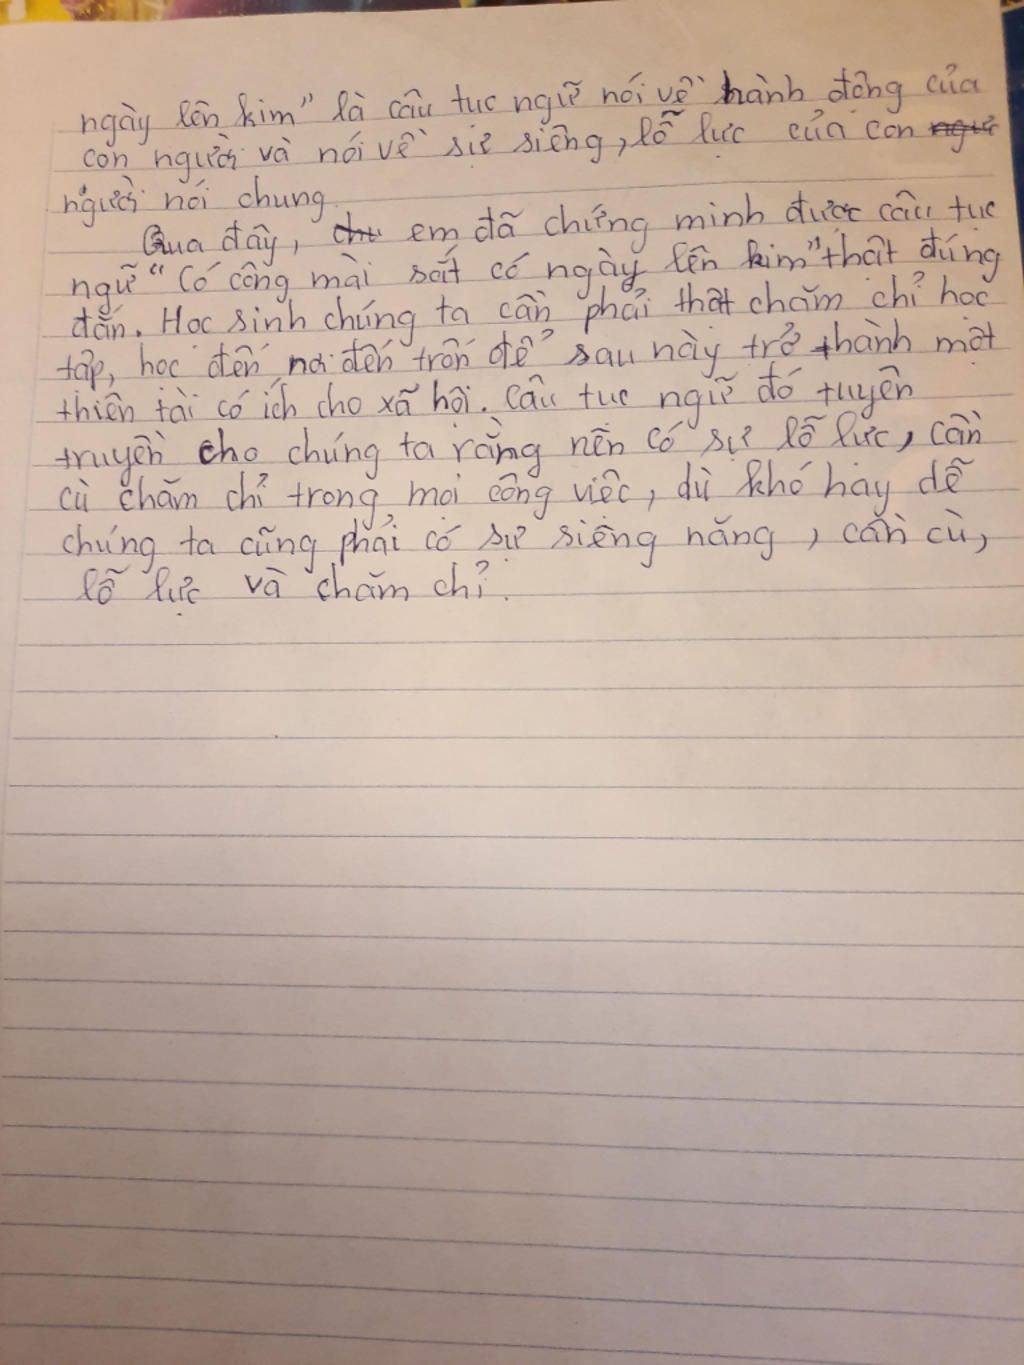 ngày lên kim" là câu tục ngữ nói về hành động của
con người và nói về sự siêng, lỗ lực của con
người nói chung.
Qua đây, em đã chứng minh được câu tục
ngữ "Có công mài sắt có ngày lên kim" thật đúng
đắn. Học sinh chúng ta cần phải thật chăm chỉ học
tập, học đến nơi đến trốn để sau này trở thành một
thiên tài có ích cho xã hội. Câu tục ngữ đó tuyên
truyền cho chúng ta rằng nên có sự lỗ lực, cần
cù chăm chỉ trong mọi công việc, dù khó hay dễ
chúng ta cũng phải có sự siêng năng, cần cù,
lỗ lực và chăm chỉ.